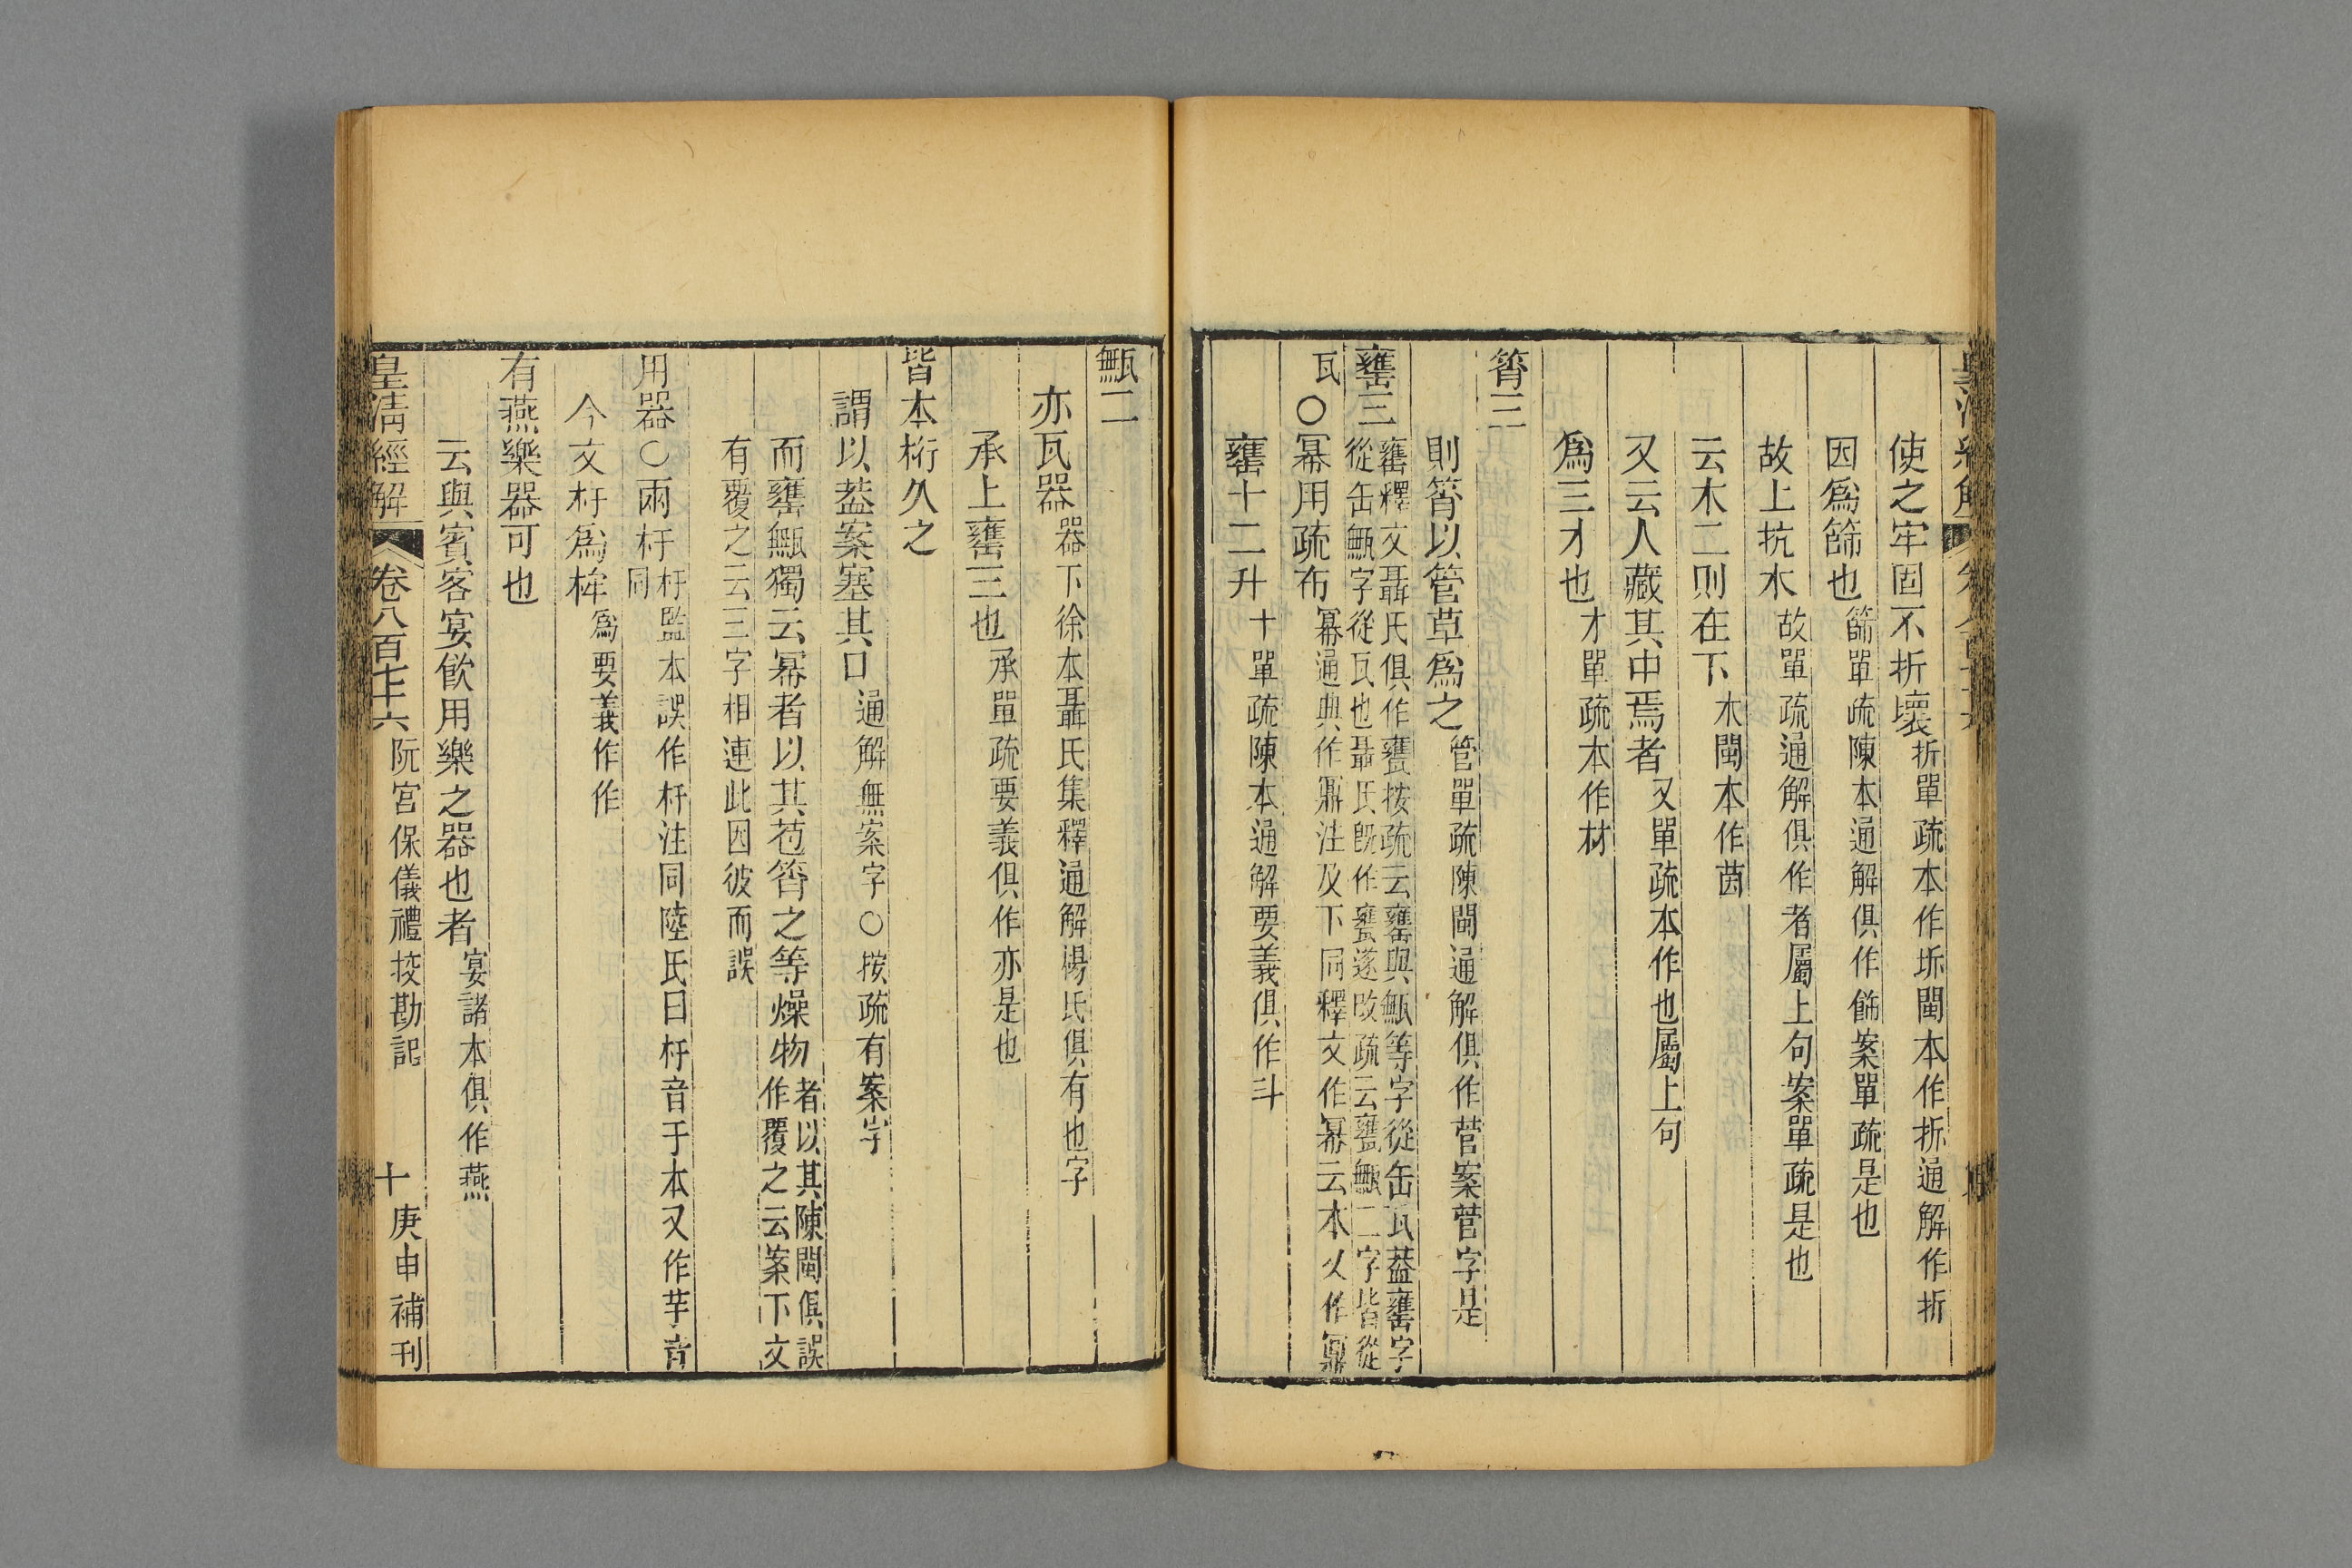 使之牢固不折壞折單疏本作坼閩本作拆通解作折
因爲篩也篩單疏陳本通解俱作飾案單疏是也
故上抗木故單疏通解俱作者屬上句案單疏是也
云木二則在下木閩本作茵
又云人藏其中焉者又單疏本作也屬上句
爲三才也才單疏本作材
筲三
則筲以管草爲之管單疏陳閩通解俱作菅案菅字是
罋三罋釋文聶氏俱作甕按疏云罋與甒等字從缶瓦葢罋字
從缶甒字從瓦也聶氏旣作甕遂改疏云甕甒二字皆從
瓦○冪用疏布冪通典作鼏注及下同釋文作冪云本又作鼏
罋十二升十單疏陳本通解要義俱作斗
甒二
亦瓦器器下徐本聶氏集釋通解楊氏俱有也字
承上罋三也承單疏要義俱作亦是也
皆木桁久之
謂以葢案塞其口通解無案字○按疏有案字
而罋甒獨云冪者以其苞筲之等燥物者以其陳閩俱誤
作覆之云案下文
有覆之云三字相連此因彼而誤
用器○兩杅杅監本誤作杆注同陸氏曰杅音于本又作芋音
同
今文杅爲桙爲要義作作
有燕樂器可也
云與賓客宴飮用樂之器也者宴諸本俱作燕
皇清經解 卷八百七十六 阮宮保儀禮挍勘記 十 庚申補刊